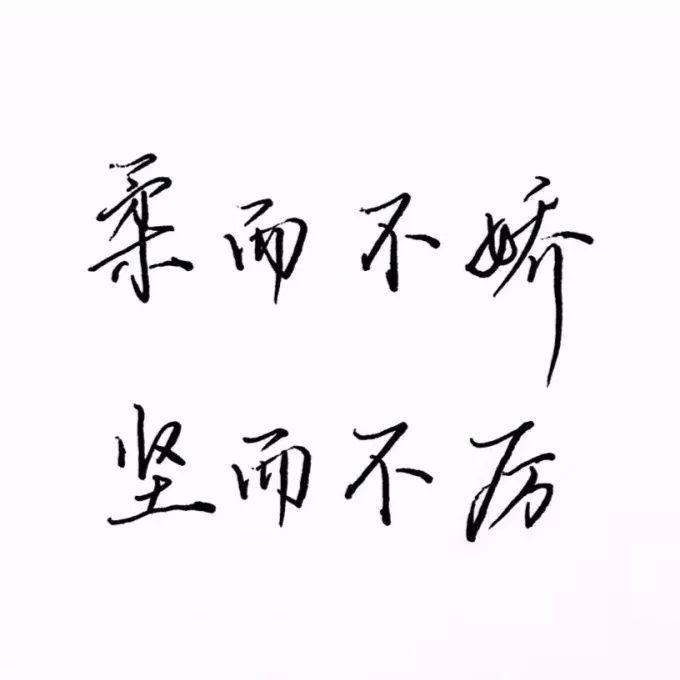 柔而不娇
坚而不厉